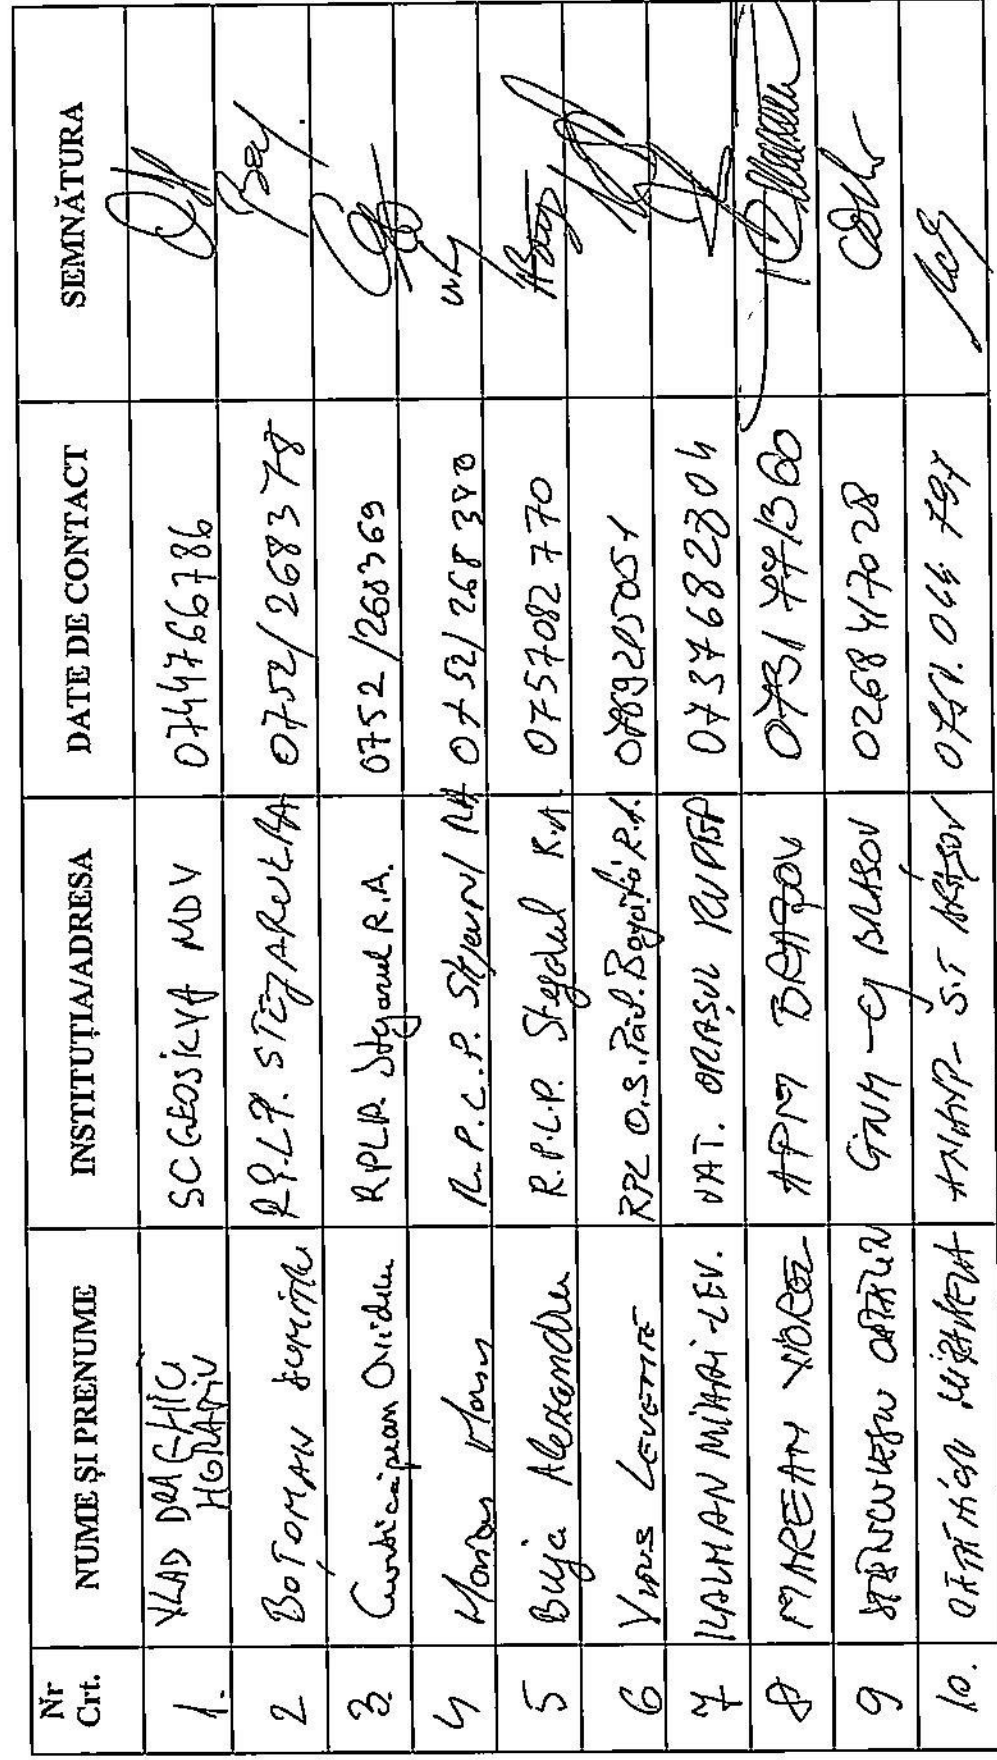 Nr Crt. NUME ȘI PRENUME INSTITUȚIA/ADRESA DATE DE CONTACT SEMNĂTURA
1. VLAD DRAGHIC HORATIU SC GEOSILVA MDV 0744766786
2 BOTOMAN DUMITRU R.P.L.P. STEJARUL RA 0752/268378
3 Ciprian Ovidiu RPLP. Stejarul R.A. 0752/268369
4 R.P.L.P. Stejarul RA 0752/268380
5 Buja Alexandru R.P.L.P. Stejarul R.A. 0757082770
6 LEVENTE RPL O.S. Pad. R.A.
7 KALMAN MIHAI-LEV. UAT. ORAȘUL RUPEA 0737682804
8 MAREAN VIOREL APM BRAȘOV 0731771360
9 STANCULESCU CATALIN GNM - CJ BRASOV 0268417028
10. S.T BRAȘOV